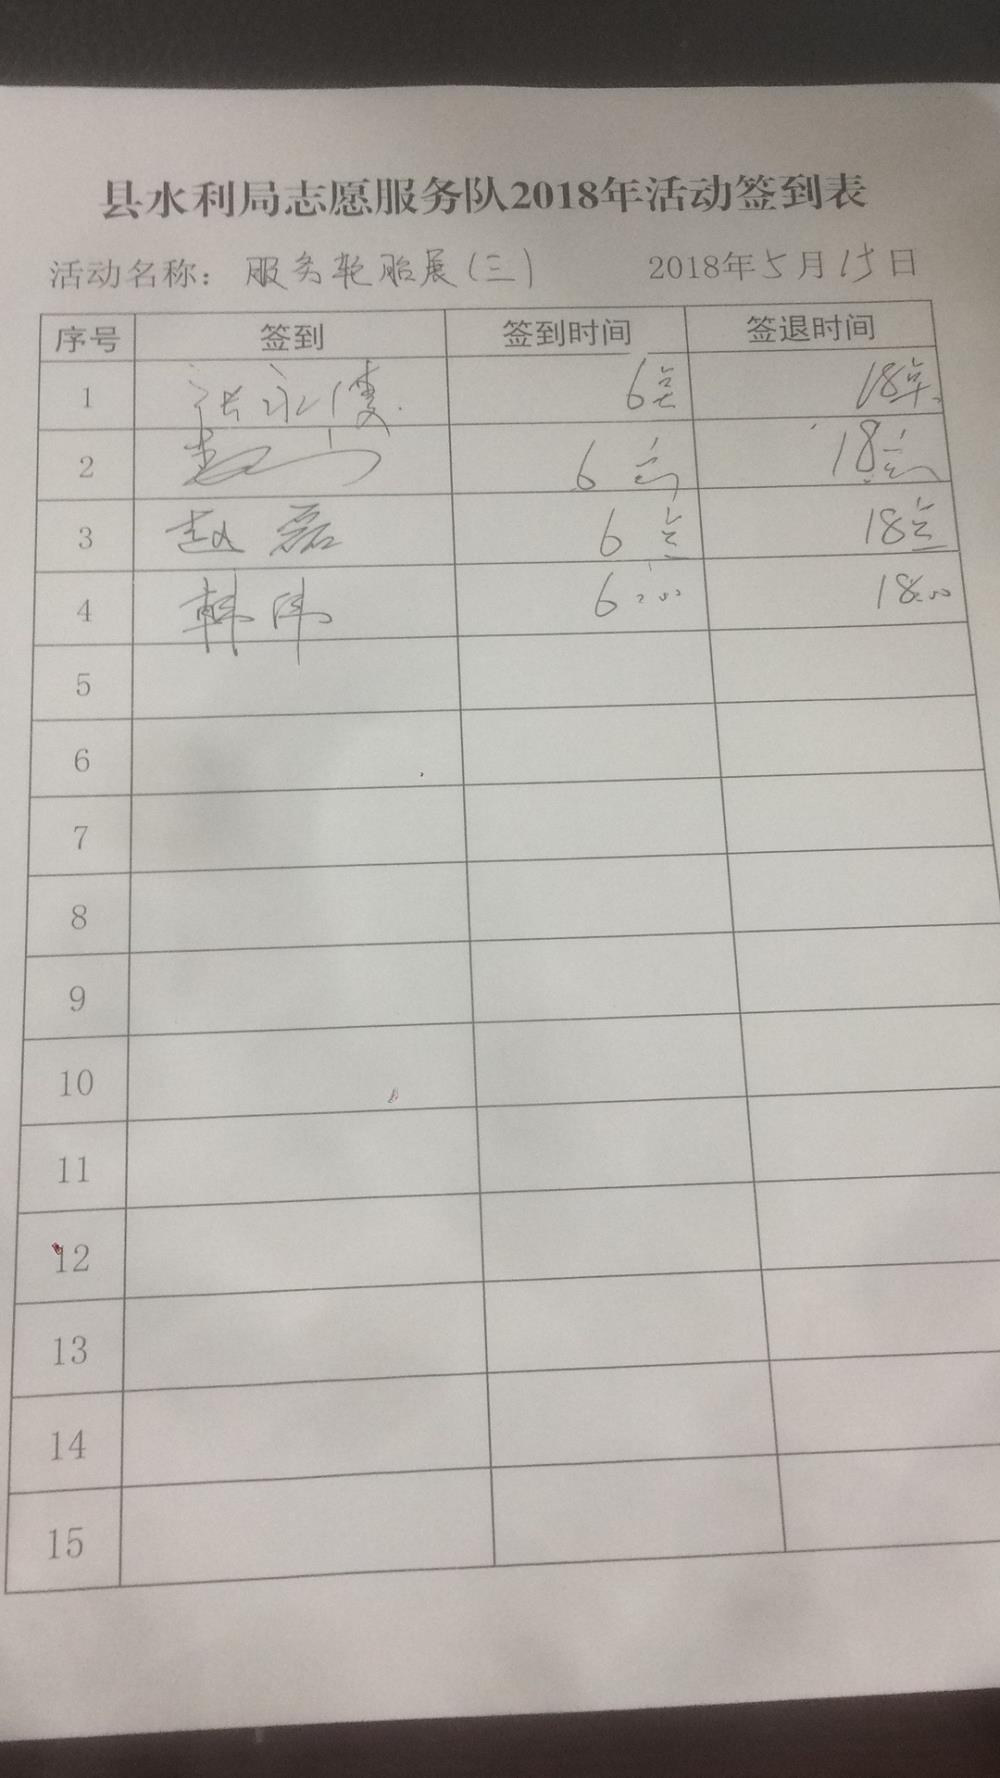 县水利局志愿服务队2018年活动签到表
活动名称：服务轮胎展(三) 2018年5月15日
序号 签到 签到时间 签退时间
1 张永 6点 18点
2 6点 18点
3 赵磊 6点 18点
4 韩伟 6:00 18:00
5
6
7
8
9
10
11
12
13
14
15